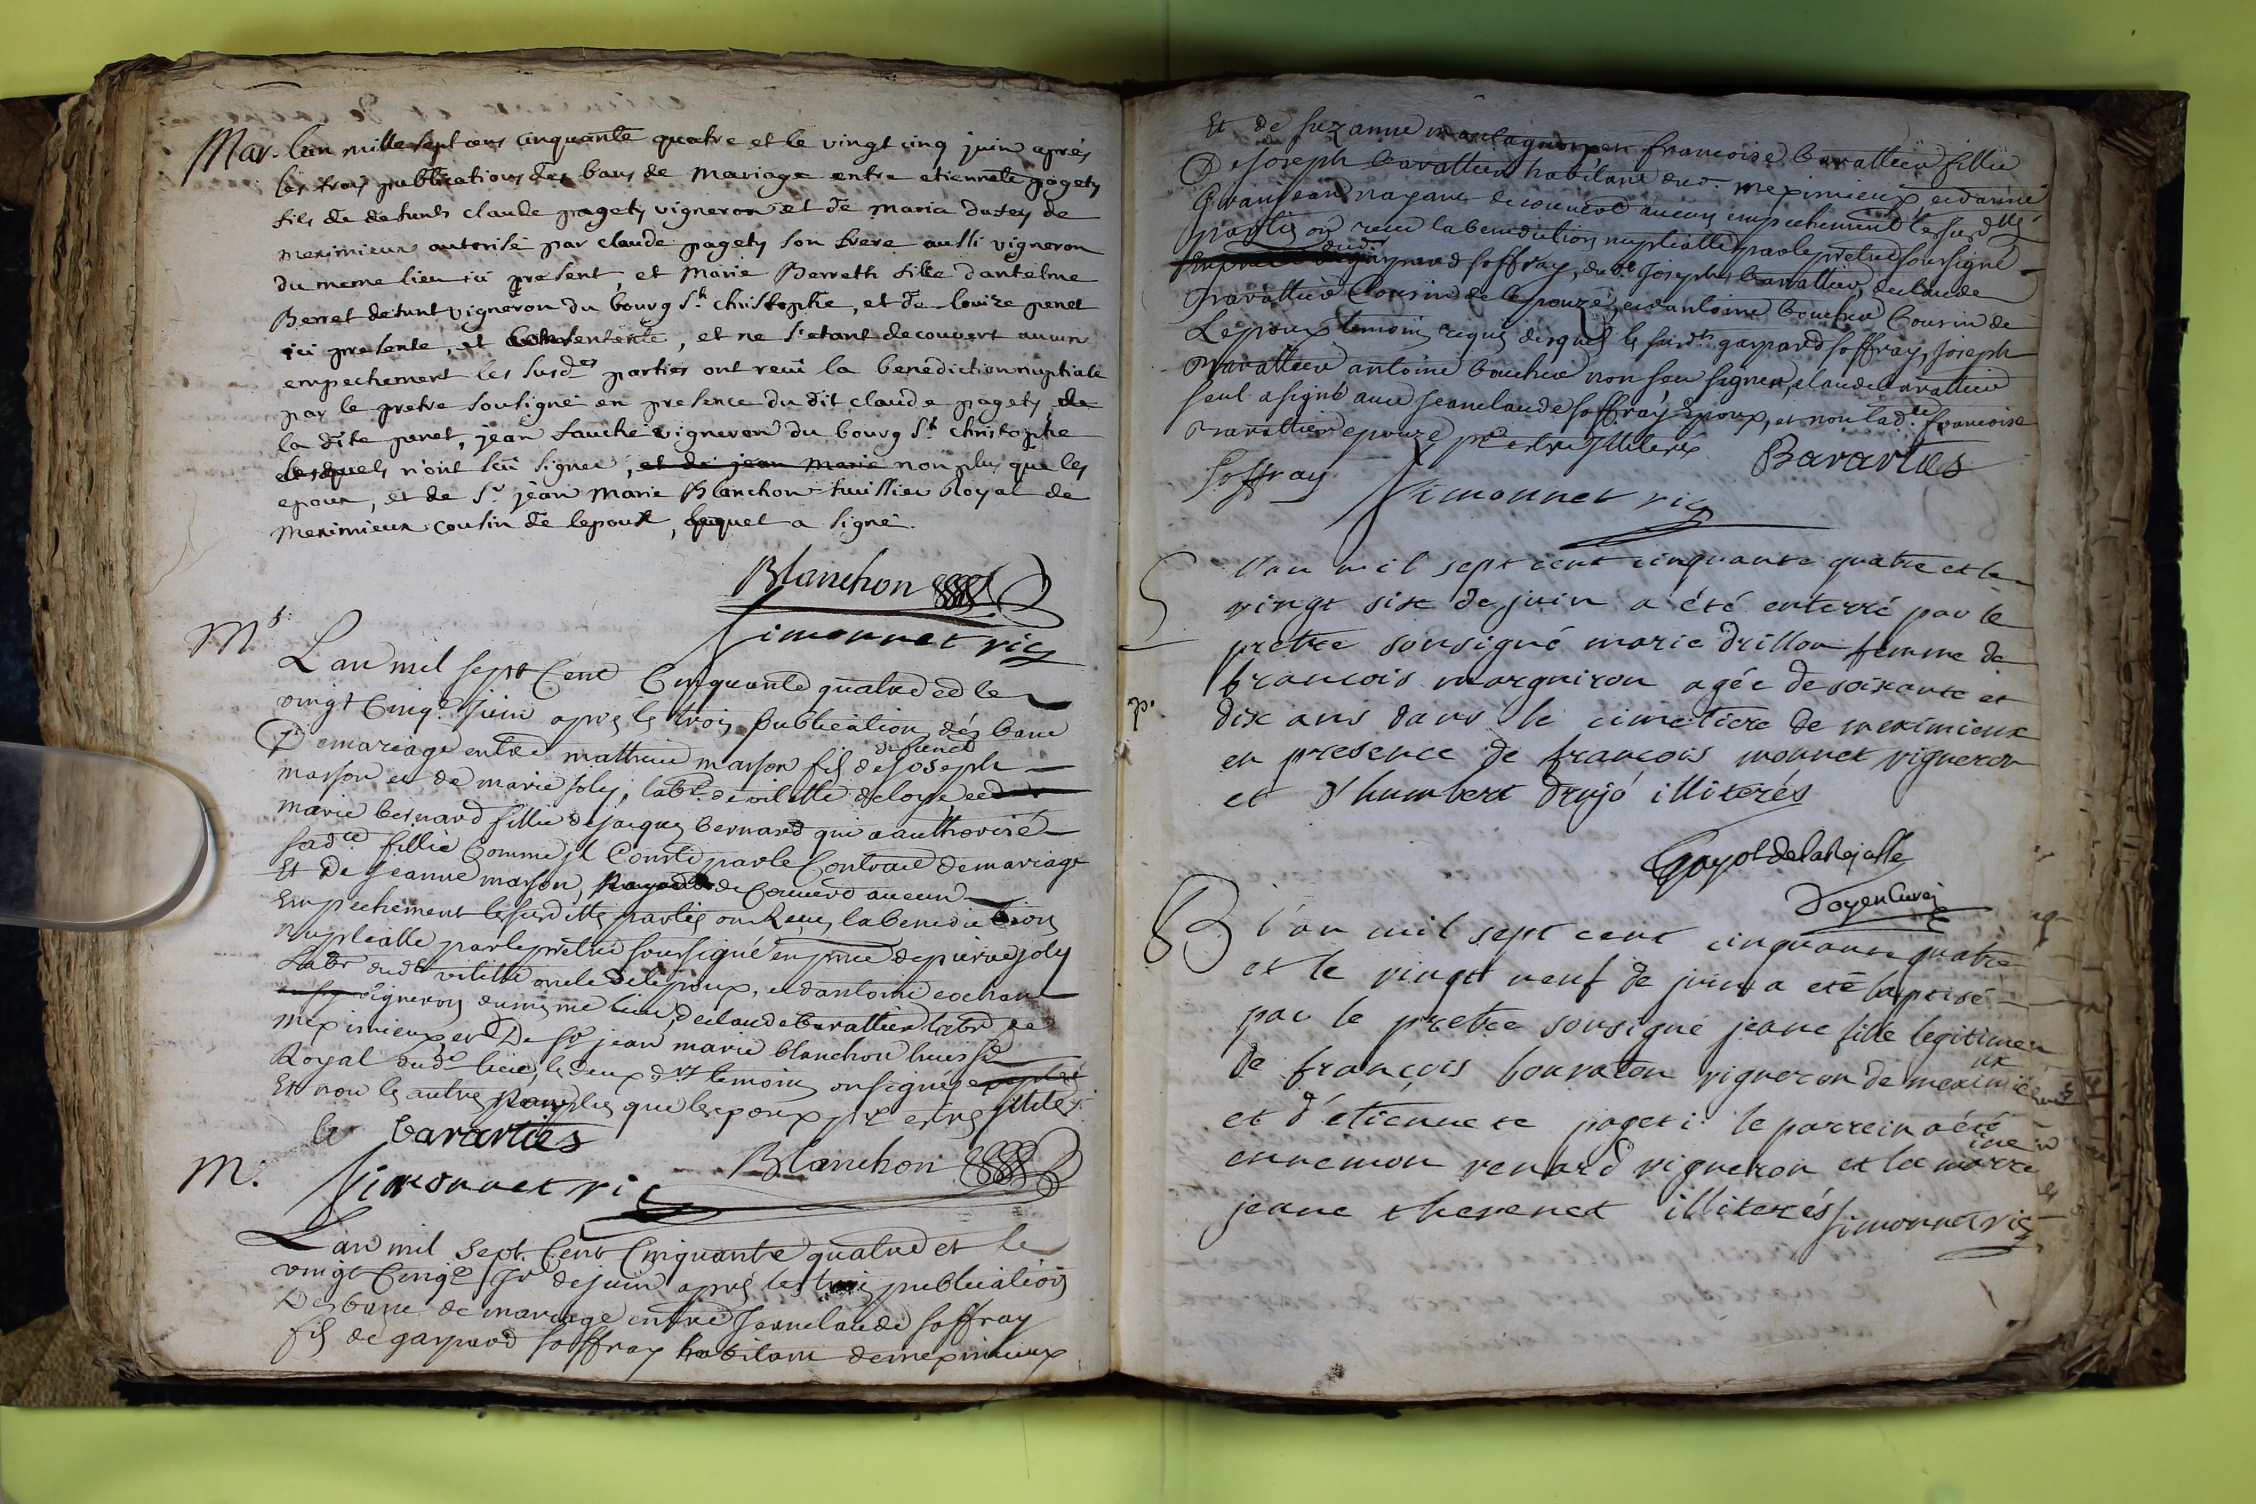 Mar. Lan mille sept cens cinquante quatre et le vingt cinq juin aprés
les trois publications des bans de Mariage entre etiennete pagety
fils de defunts claude pagety vigneron et de Maria dutey de
meximieux autorisé par claude pagety son frere aussi vigneron
du meme lieu ici present, et Marie Berreth fille dantelme
Berret defunt vigneron du bourg St. christophe, et de louize penet
ici presente, et consentente, et ne s'etant decouvert aucun
empechement les susdes parties ont reçu la benediction nuptiale
par le pretre sousigné en presence du dit claude pagety, de
la dite penet, jean fauche vigneron du bourg St. christophe
lesquels n'ont sçu signer, et de jean marie non plus que les
epoux, et de Sr. jean Marie Blanchon huissier Royal de
Meximieux cousin de lepoux, lequel a signé.
Blanchon
Simonnet vic
M.
Lan mil sept Cent Cinquante quatre et le
vingt Cinq.e Juin apres les trois publication des banc
De mariage entre mathieu masson fils de defunct Joseph
masson et de marie joly, labr. de vilette de loye et
marie bernard fillie de jacques bernard qui a authorisé
sadte. fillie Comme jl Conste par le Contract de mariage
Et de jeanne masson, decouvert aucun
Empechement les susdittes parties on Reçu la benediction
nuptialle par le prêtre soussigné en pnce de pierre joly
Labr dudt vilette oncle de lepoux, et dantoine cochan
vigneron du meme lieu, de claude baratlier labr de
meximieux, et De Sr jean marie blanchon huissr
Royal dudt lieu, les deux drs temoins on signés
Et non les autres non plus que les epoux pr etre jlliter.
bararlies
Blanchon
Simonnet vic
M.
Lan mil sept. Cent Cinquante quatre et le
vingt Cinq.e Jr de juin apres les trois publications
Des banc de mariage entre Jeanclaude soffray
fils de gaspard soffray habitant de meximieux
Et de suzanne françoise baratlier fillie
De joseph baratlier habitant dud. meximieux et danne
nayant decouvert aucun empechement les susdttes
parties on reçu la benediction nuptialle par le prêtre soussigné
gaspard soffray, dudt. Joseph baratlier, de claude
baratlier Cousin de lepouze, et dantoine bouchu Cousin de
Lepoux temoins requis desquels les susdts gaspard soffray, Joseph
baratlier antoine bouchu non seu signer, claude baratlier
seul a signé avec jeanclaude soffray Epoux, et non ladte. francoise
baratlier epouze pr etre jlliterés
Soffray
Bararlies
Simonnet vic
S
L'an mil sept cent cinquante quatre et le
vingt six de juin a été enterré par le
pretre sousigné marie drillon femme de
françois margniron agée de soixante et
p.
dix ans dans le cimetiere de meximieux
en presence de françois monnet vigneron
et d'humbert drujó illiterés
Gayot de la Rajasse
Doyen Curé
B
l'an mil sept cent cinquante quatre
et le vingt neuf de juin a eté baptisé
par le pretre sousigné jeane fille legitime
de françois bouraton vigneron de meximieux
et d'etiennete pageti le parrein a été
ennemon renard vigneron et la marreine
jeane thevenet illiterés
Simonnet vic